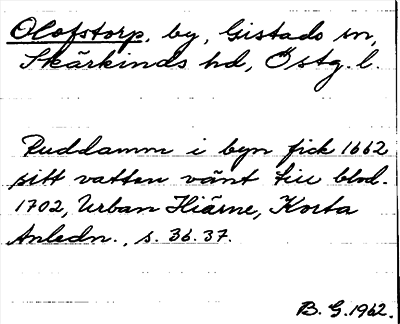 Olofstorp, by, Gistads sn,
Skärkinds hd, Östg. l.
Ruddamm i byn fick 1662
sitt vatten vänt till blod.
1702, Urban Hiärne, Korta
Anledn., s. 36. 37.
B. G. 1962.